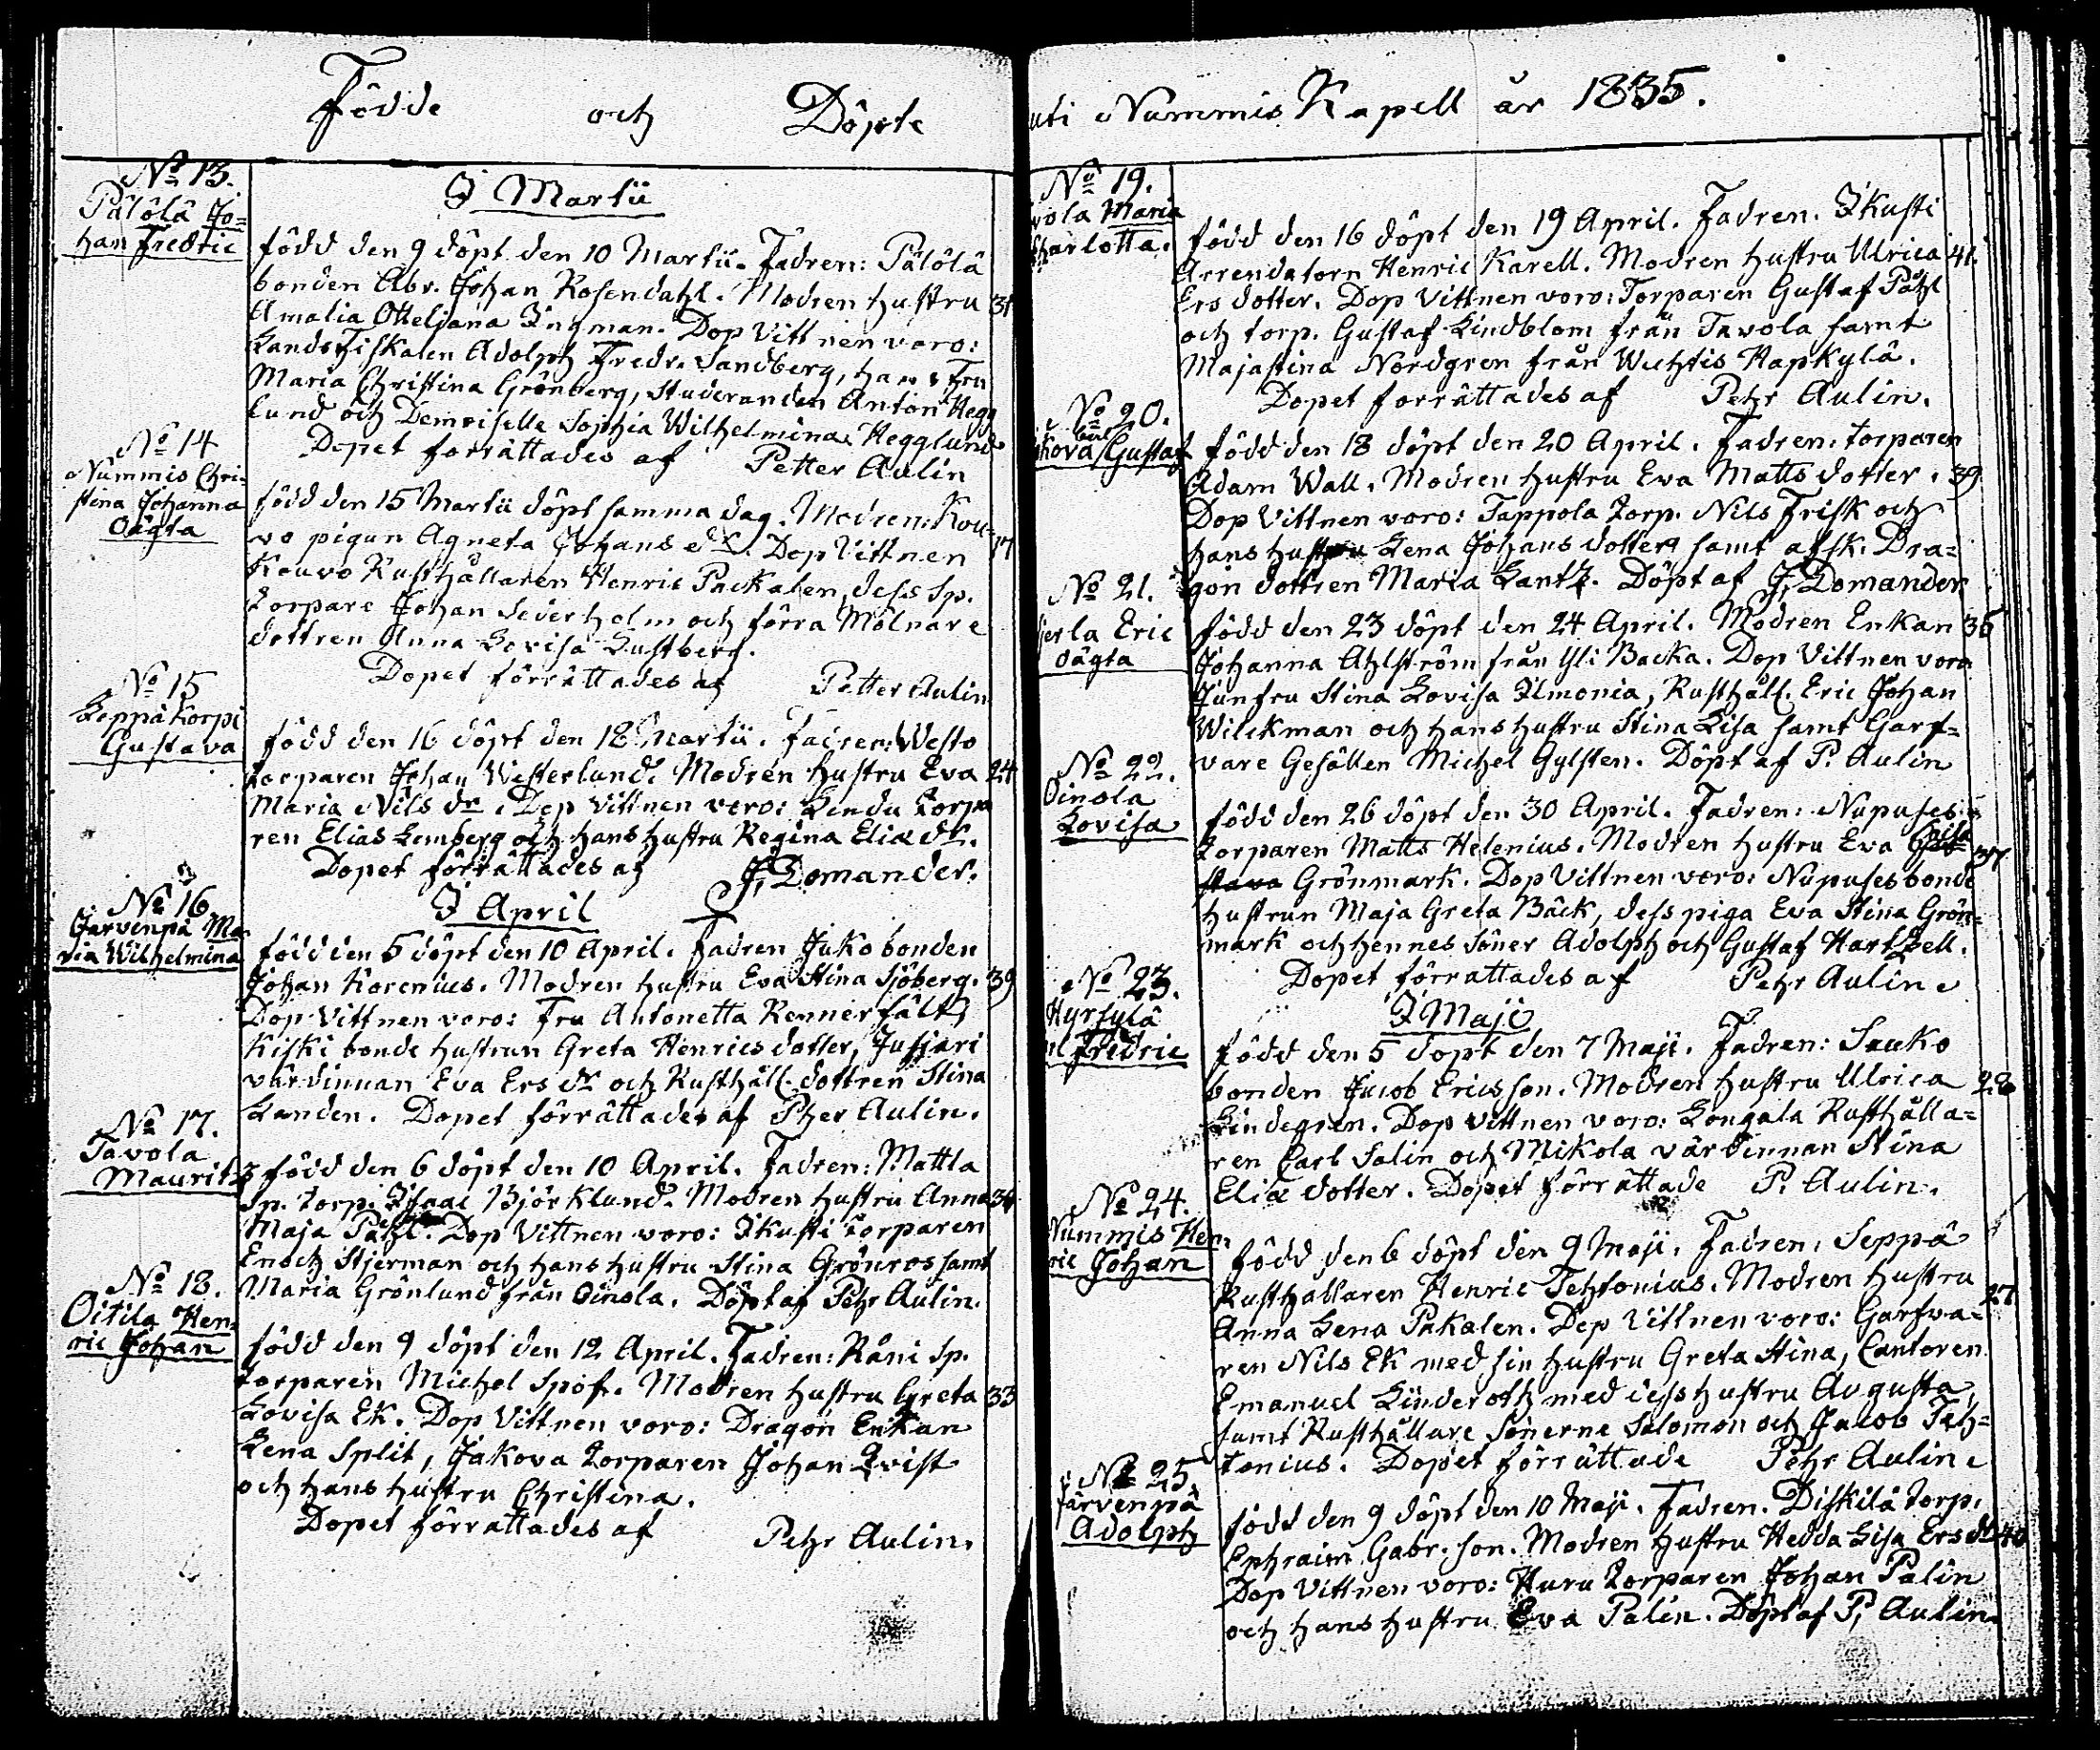 Födde och Döpte
N:o 13.
Pälölä Jo=
han Fredric
I Martii
född den 9 döpt den 10 Martii. Fadren: Pälölä
bonden Abr. Johan Rosendahl. Modren hustru 31
Amalia Otteljana Ingman. Dop Vittnen voro:
LandsFiskalen Adolph Fredr. Sandberg, hans Fru
Maria Christina Grönberg, Studeranden Anton Hegg
lund och Demoiselle Sophia Wilhelmina Hegglund
Dopet förrättades af Petter Aulin
N:o 14
Nummis Chri-
stina Johanna
oägta
född den 15 Martii döpt samma dag. Modren: Kou-
vo pigan Agneta Johans dr. Dop Vittnen 17
Kouvo Rusthållaren Henric Packalen, dess Sp.
torpare Johan Sederholm och förra Mölnare
dottren Anna Lovisa Lustberg.
Dopet förrättades af Petter Aulin
N:o 15
Leppäkorpi
Gustava
född den 16 döpt den 18 Martii. Fadren: Westo
torparen Johan Westerlund. Modren hustru Eva 24
Maria Nils dr. Dop Vittnen voro: Lindu torpa
ren Elias Lemberg och hans hustru Regina Eliæ dr.
Dopet förrättades af J. Domander.
I April
N:o 16
Jarvenpä Ma-
ria Wilhelmina
född den 5 döpt den 10 April. Fadren Juko bonden
Johan Korenius. Modren hustru Eva Stina Sjöberg. 39
Dop Vittnen voro: Fru Antonetta Rennerfält,
Kiski bonde hustrun Greta Henrics dotter, Jusjari
värdinnan Eva Ers dr och Rusthåll. dottren Stina
Landen. Dopet förrättades af Pher Aulin.
N:o 17.
Tavola
Maurits
född den 6 döpt den 10 April. Fadren: Mattla
Sp. torp. Isaac Björklund. Modren hustru Anna 34
Maja Påhl. Dop Vittnen voro: Ikusti torparen
Enoch Stjerman och hans hustru Stina Grönros samt
Maria Grönlund från Oinola. Döpt af Pehr Aulin.
N:o 18.
Oitila Hen-
ric Johan
född den 9 döpt den 12 April. Fadren: Räni Sp.
torparen Michel Spof. Modren hustru Greta 33
Lovisa Ek. Dop Vittnen voro: Dragon Enkan
Lena Split, Jakova torparen Johan Qvist
och hans hustru Christina.
Dopet förrättades af Pehr Aulin.
uti Nummis Kapell år 1835.
N:o 19.
vola Maria
Charlotta.
född den 16 döpt den 19 April. Fadren. Ikusti
Arrendatorn Henric Karell. Modren hustru Ulrica 41.
Ers dotter. Dop Vittnen voro: Torparen Gustaf Påhl
och torp. Gustaf Lindblom från Tavola samt
Majastina Nordgren från Wichtis Hapkylä.
Dopet förrättades af Pehr Aulin.
N:o 20.
kova Gustaf
född den 18 döpt den 20 April. Fadren. torparen
Adam Wall. Modren hustru Eva Matts dotter. 39
Dop Vittnen voro: Tappola torp. Nils Frisk och
hans hustru Lena Johans dotter samt afsk. Dra-
gon dottren Maria Lantz. Döpt af J. Domander
N:o 21.
jerla Eric
oägta
född den 23 döpt den 24 April. Modren Enkan 36
Johanna Ahlström från Yli Backa. Dop Vittnen voro
Junfru Stina Lovisa Ilmonia, Rusthåll. Eric Johan
Wilckman och hans hustru Stina Lisa samt Garf-
vare Gesällen Michel Gylsten. Döpt af P. Aulin
N:o 22.
Oinola
Lovisa
född den 26 döpt den 30 April. Fadren: Nupuses
torparen Matts Helenius. Modren hustru Eva Caisa 37
Grönmark. Dop Vittnen voro: Nupuses bonde
hustrun Maja Greta Bäck, dess piga Eva Stina Grön-
mark och hennes söner Adolph och Gustaf Hartzell.
Dopet förrättades af Pehr Aulin.
I Maji
N:o 23.
Hyrsylä
Fredric
född den 5 döpt den 7 Maji. Fadren: Sauko
bonden Jacob Ericsson. Modren hustru Ulrica 28
Lindegren. Dop vittnen voro: Longala Rusthålla-
ren Carl Salin och Mikola värdinnan Stina
Eliæ dotter. Dopet förrättade P. Aulin.
N:o 24.
Nummis Hen-
ric Johan
född den 6 döpt den 9 Maji. Fadren, Seppä
Rusthallaren Henric Tehtonius. Modren hustru
Anna Lena Pakalen. Dop Vittnen voro: Garfva- 27
ren Nils Ek med sin hustru Greta Stina, Cantoren
Emanuel Linderoth med dess hustru Augusta,
samt Rusthållare Sönerne Salomon och Jacob Teh-
tonius. Dopet förrättade Pehr Aulin.
N:o 25.
Järvenpä
Adolph
född den 9 döpt den 10 Maji. Fadren. Diskilä torp.
Ephraim Gabr. son. Modren hustru Hedda Lisa Ers dr 40
Dop Vittnen voro: Huru torparen Johan Palin
och hans hustru Eva Palin. Döpt af P. Aulin.